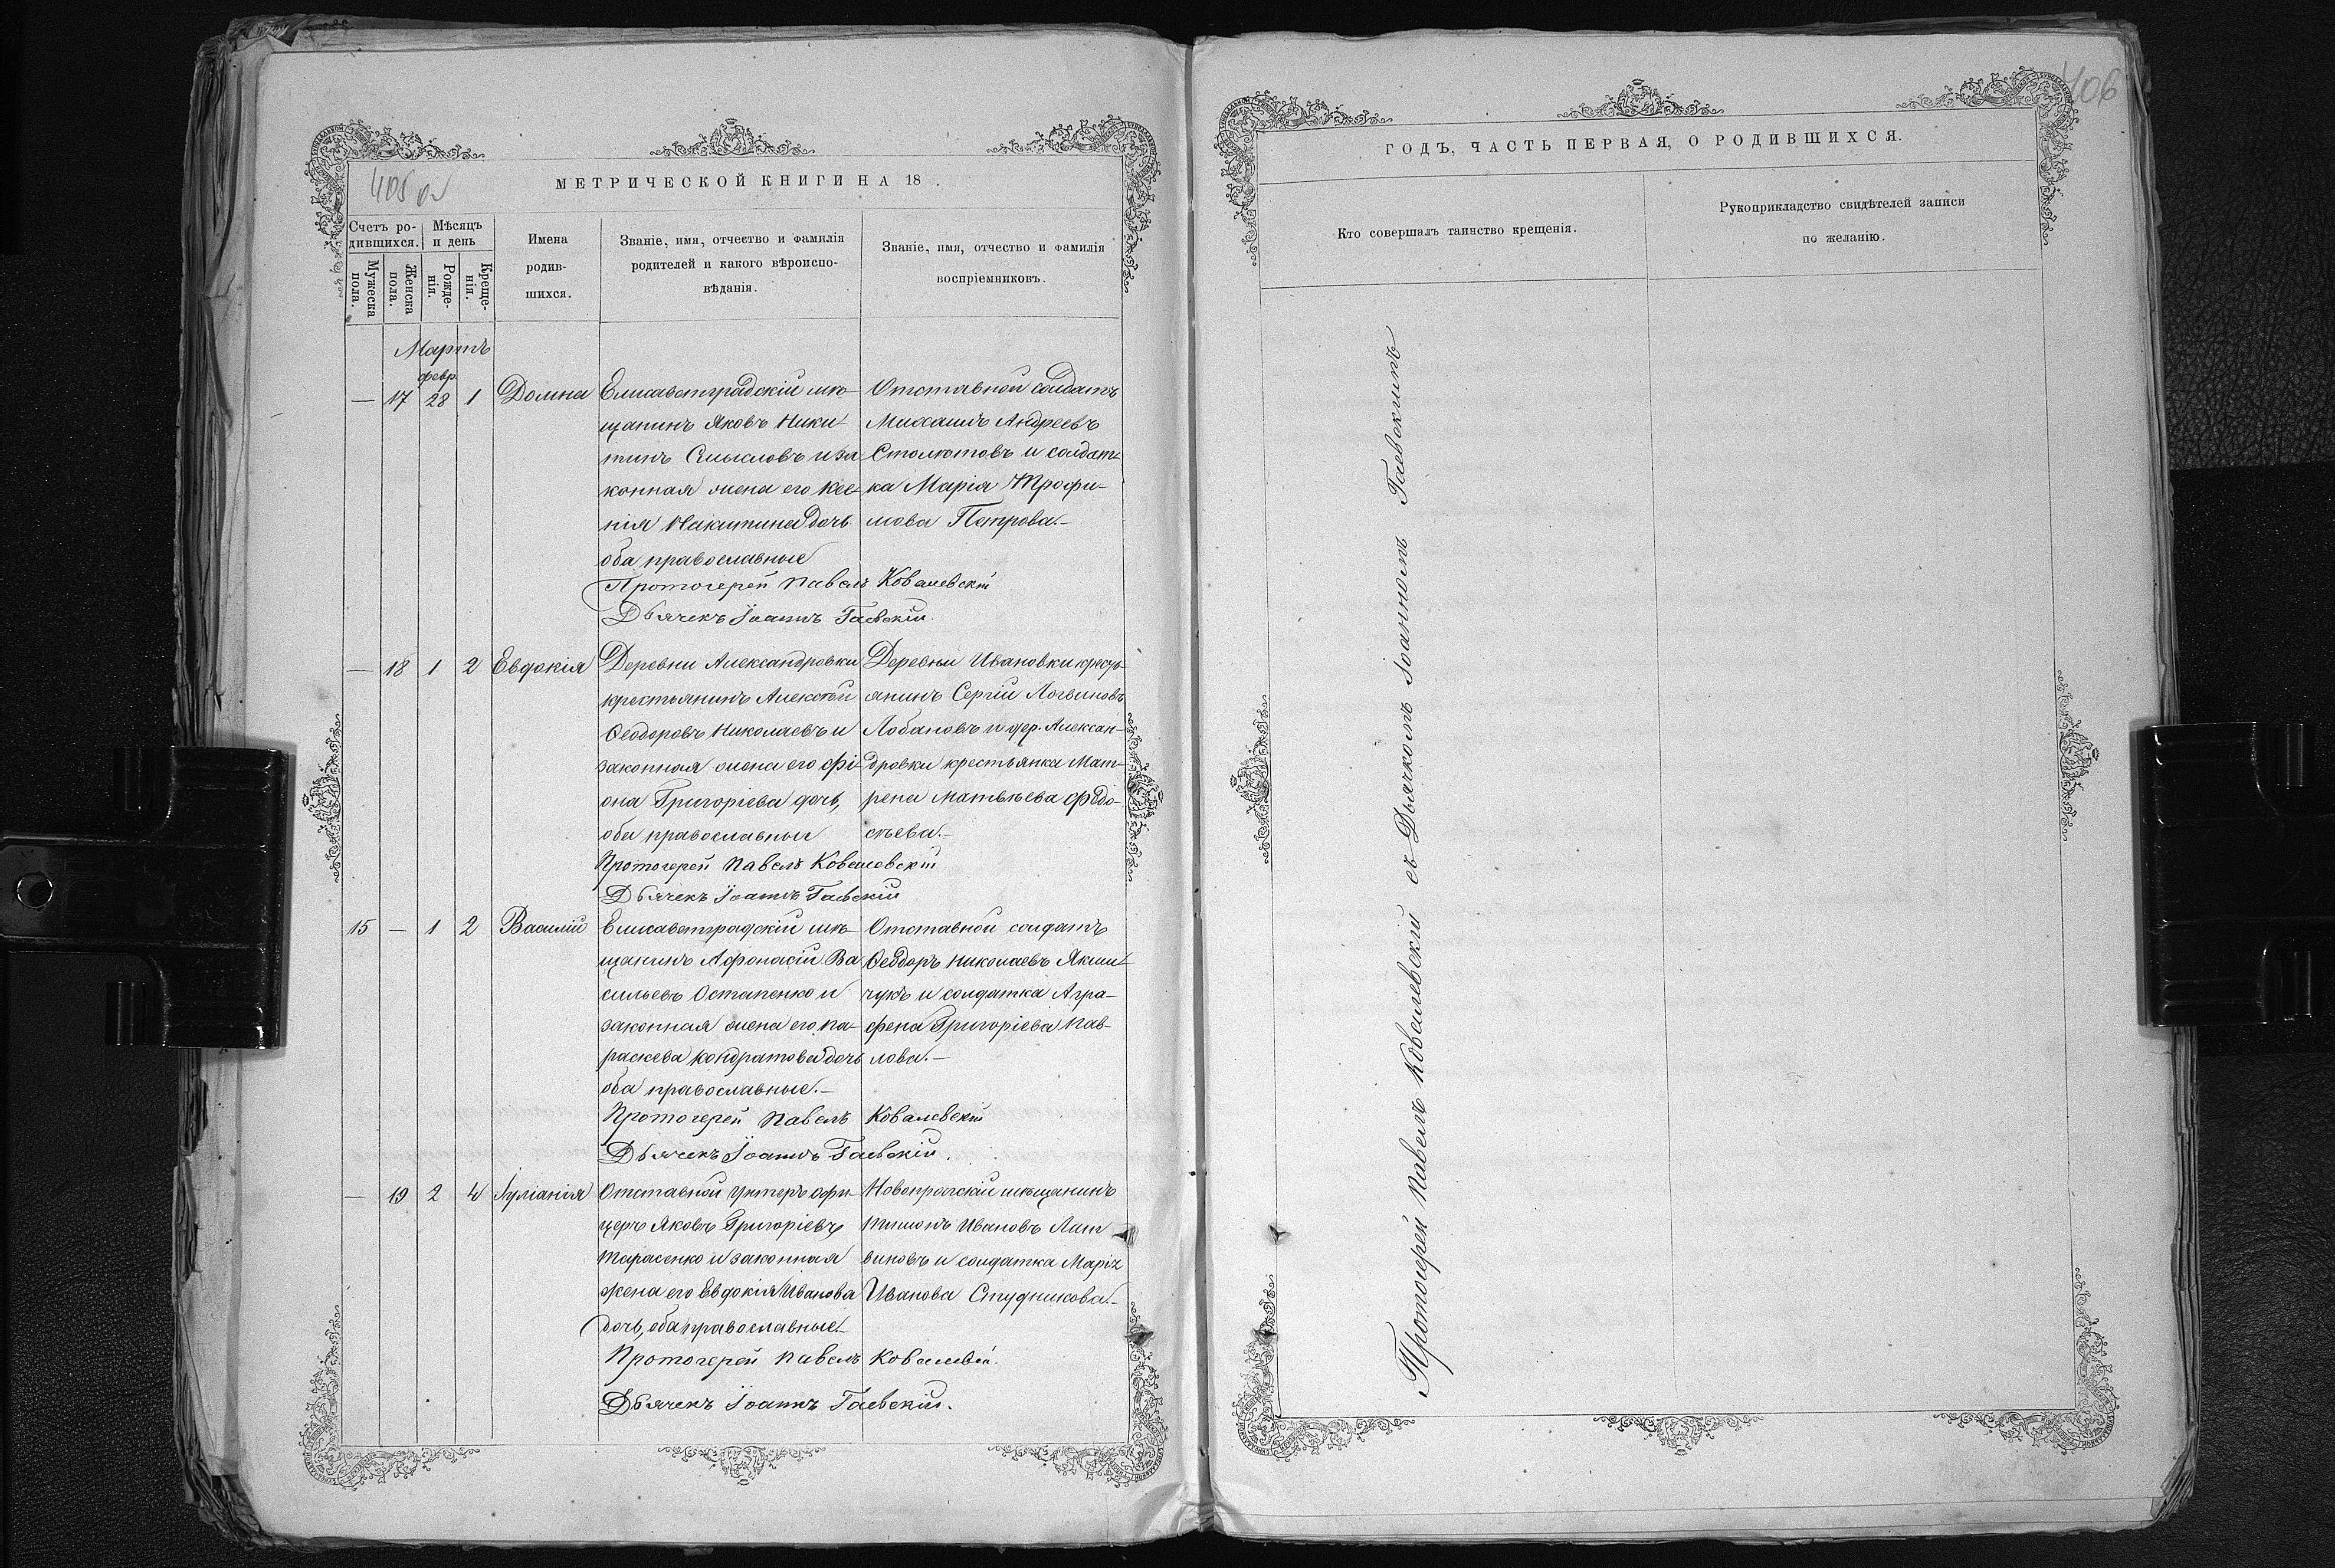 405 об
МЕТРИЧЕСКОЙ КНИГИ НА 18 .
Счетъ ро-
дившихся.
Мужеска
пола.
Женска
пола.
Мѣсяцъ
и день
Рожде-
нія.
Креще-
нія.
Имена
родив-
шихся.
Званіе, имя, отчество и фамилія
родителей и какого вѣроиспо-
вѣданія.
Званіе, имя, отчество и фамилія
воспріемниковъ.
Мартъ
февр.
— 17 28 1 Домна
Елисаветградскій мѣ-
щанинъ Яковъ Ники
тинъ Смысловъ и за
конная жена его Ксе-
нія Никитина дочь
оба православные
Отставной солдатъ
Михаилъ Андреевъ
Столютовъ и солдат-
ка Марія Трофи-
мова Петрова.—
Протоіерей Павелъ Ковалевскій
Дьячекъ Іоаннъ Гаевскій.
— 18 1 2 Евдокія
Деревни Александровки
крестьянинъ Алексѣй
Ѳеодоровъ Николаевъ и
законная жена его Фі-
она Григоріева дочь,
оба православные
Деревни Ивановки кресть-
янинъ Сергій Логвиновъ
Лобановъ и дер. Алексан-
дровки крестьянка Мат-
рена Матвѣева Федо-
сѣева.—
Протоіерей Павелъ Ковалевскій
Дьячекъ Іоаннъ Гаевскій
15 — 1 2 Василій
Елисаветградскій мѣ-
щанинъ Афонасій Ва
сильевъ Остапенко и
законная жена его Па-
раскева Кондратова дочь
оба православные.—
Отставной солдатъ
Ѳеодоръ Николаевъ Яким-
чукъ и солдатка Агра-
фена Григоріева Пав-
лова.—
Протоіерей Павелъ Ковалевскій
Дьячекъ Іоаннъ Гаевскій.
— 19 2 4 Іуліанія
Отставной унтеръ офи-
церъ Яковъ Григоріевъ
Тарасенко и законная
жена его Евдокія Иванова
дочь, оба православные.—
Новопражскій мѣщанинъ
Тимонъ Ивановъ Лит
виновъ и солдатка Марія
Иванова Студникова.—
Протоіерей Павелъ Ковалевскій.
Дьячекъ Іоаннъ Гаевскій.
406
ГОДЪ, ЧАСТЬ ПЕРВАЯ, О РОДИВШИХСЯ.
Кто совершалъ таинство крещенія.
Рукоприкладство свидѣтелей записи
по желанію.
Протоіерей Павелъ Ковалевскій съ Дьячкомъ Іоанномъ Гаевскимъ